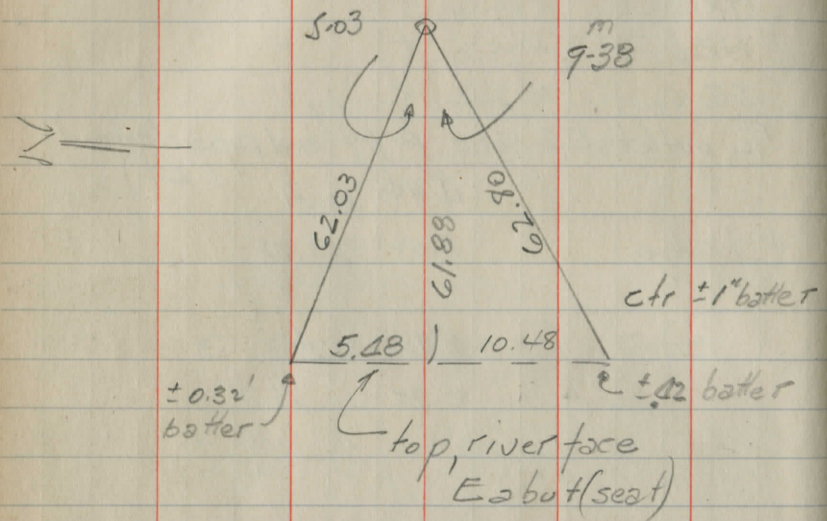 5-03
m
9-38
62.03
61.88
62.80
ctr ±1" batter
5.48 10.48
±0.32'
batter
±.12 batter
top, river face
E abut (seat)